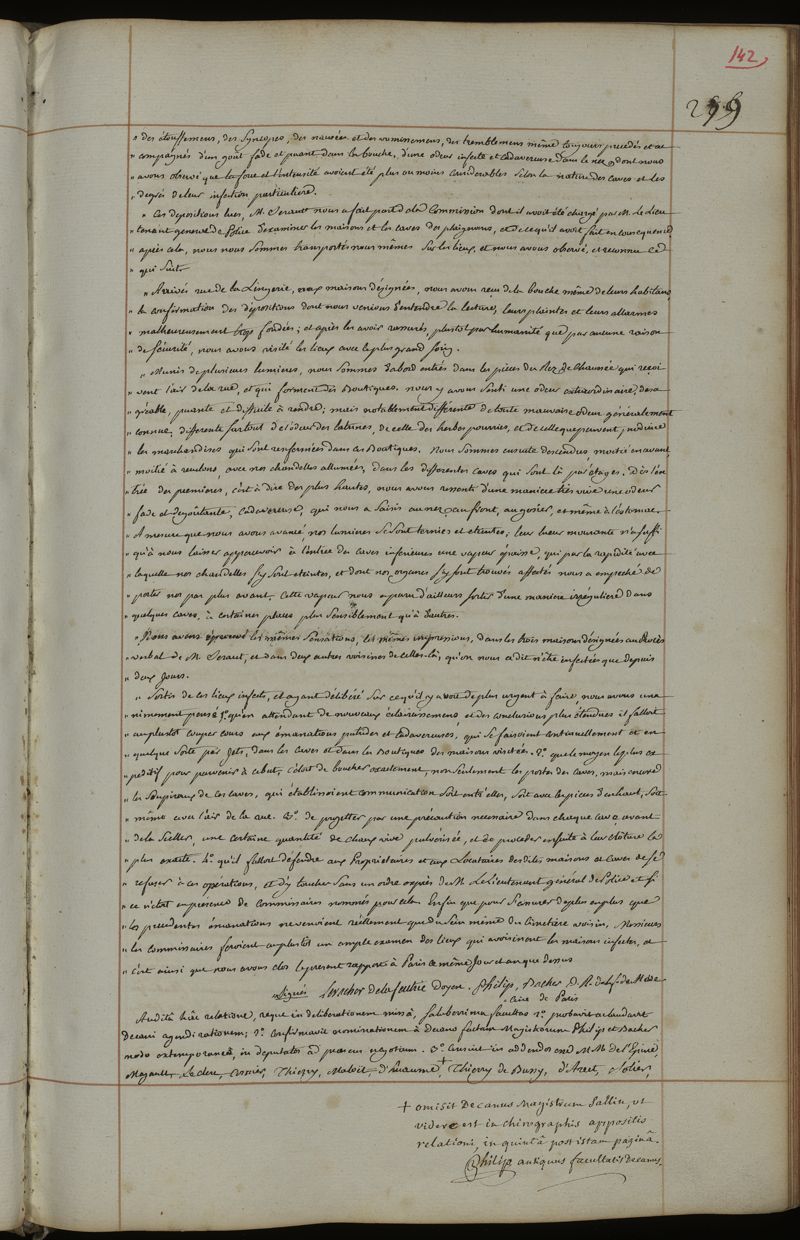 142
299
" des étouffemens, des syncopes, des nausées et des vomissemens, des tremblemens même toujours precedés et ac
" compagnés d'un gout fade et puant dans la bouche, d'une odeur infecte et cadavereuse dans le nez, dont nous
" avons observé que la force et l'intensité avoient été plus ou moins considerables selon la nature des caves et les
" degrés de leur infection particuliere.
" Ces depositions lues, M. Ceraut nous a fait part de la Commission dont il avoit été chargé par M. le Lieu
" tenant general de Police d'examiner les maisons et les caves des plaignans, et de ce qu'il avoit fait en consequence
" après cela, nous nous sommes transportés nous mêmes sur les lieux, et nous avons observé, et reconnu ce
" qui suit.
" Arrivés rue de la Lingerie, aux maisons désignées, nous avons reçu de la bouche même de leurs habitans
" la confirmation des dépositions dont nous venions d'entendre la lecture, leurs plaintes et leurs allarmes
" malheureusement trop fondées; et après les avoir rassurés, plustot par humanité que par aucune raison
" de sécurité, nous avons visité les lieux avec le plus grand soin.
" Munis de plusieurs lumieres, nous sommes d'abord entrés dans les pieces du Rez de Chaussée qui recoi
" vent l'air de la rue, et qui forment des Boutiques. nous y avons senti une odeur extraordinaire, desa
" gréable, puante et difficile à rendre; mais notablement différente de toute mauvaise odeur généralement
" connue, differente surtout de l'odeur des latrines, de celle des herbes pourries, et de celle que peuvent produire
" les marchandises qui sont renfermées dans ces Boutiques. Nous sommes ensuite descendus moitié en avant
" moitié à reculons, avec nos chandelles allumées, dans les differentes caves qui sont là par étages. Dès l'en
" trée des premieres, c'est à dire des plus hautes, nous avons ressenti d'une maniere très vive une odeur
" fade et degoutante, cadavereuse, qui nous a saisis au nez, au front, au gosier, et même à l'estomac.
" A mesure que nous avons avancé, nos lumieres se sont ternies et eteintes; leur lueur mourante n'a suffi
" qu'à nous laisser appercevoir à l'entrée des caves inferieures une vapeur epaisse, qui par la rapidité avec
" laquelle nos chandelles s'y sont eteintes, et dont nos organes s'y sont trouvés affectés nous a empeché de
" porter nos pas plus avant. Cette vapeur nous a paru d'ailleurs sortir d'une maniere irréguliere dans
" quelques caves, à certaines places plus sensiblement qu'à d'autres.
" Nous avons éprouvé les mêmes sensations, les mêmes impressions, dans les trois maisons désignées au Procès
" verbal de M. Ceraut, et dans deux autres voisines de celles-là, qu'on nous a dit n'être infectées que depuis
" deux jours.
" Sortis de ces lieux infects, et ayant déliberé sur ce qu'il y avoit de plus urgent à faire, nous avons una
" nimement pensé 1.° qu'en attendant de nouveaux éclaircissemens, et des conclusions plus étendues il falloit
" au plustot couper cours aux émanations putrides et cadavereuses, qui se faisoient continuellement et en
" quelque sorte par jets, dans les caves et dans les Boutiques des maisons visitées. 2.° que le moyen le plus ex
" peditif pour parvenir à ce but, c'étoit de boucher exactement, non seulement les portes des caves, mais encore
" les soupiraux de ces caves, qui établissoient communication soit entr'elles, soit avec les pieces d'enhaut, soit
" même avec l'air de la rue. 3.° de projetter par une précaution necessaire dans chaque cave avant
" de la sceller, une certaine quantité de chaux vive pulverisée, et de proceder ensuite à leur clôture la
" plus exacte. 4.° qu'il falloit défendre aux Proprietaires et aux Locataires desdites maisons et caves de se
" refuser à ces opérations, et d'y toucher sans un ordre exprès de M. Le Lieutenant général de Police et si
" ce n'étoit en presence de commissaires nommés pour cela. Enfin que pour s'assurer de plus en plus que
" les precedentes émanations ne venoient réellement que du sein même du Cimetière voisin, Messieurs
" les commissaires feroient au plustot un ample examen des lieux qui avoisinent les maisons infectes, et
" c'est ainsi que nous avons clos le present rapport à Paris ce même jour et an que dessus
Signés Levacher de la feutrie Doyen. Philip, Dacher, D. R. de la f. de Méde-
cine de Paris
Auditâ hâc relatione, reque in deliberationem missâ, saluberrima facultas 1.° probavit ac laudavit
Decani agendi rationem; 2.° confirmavit nominationem à Decano factam Magistrorum Philip et Dacher
modo extemporaneâ, in deputatos ad praesens negotium. 3.° censuit iis addendos esse M. M. de l'Epine,
Mazault, Le clerc, Cosnier, Thierry, Maloët, d'huaume, + Thierry de Bussy, d'Arcet, Solier,
+ omisit Decanus Magistrum Sallin, ut
videre est in chirographis appositis
relationi, in quintâ post istam paginâ.
Philip antiquus facultatis Decanus.